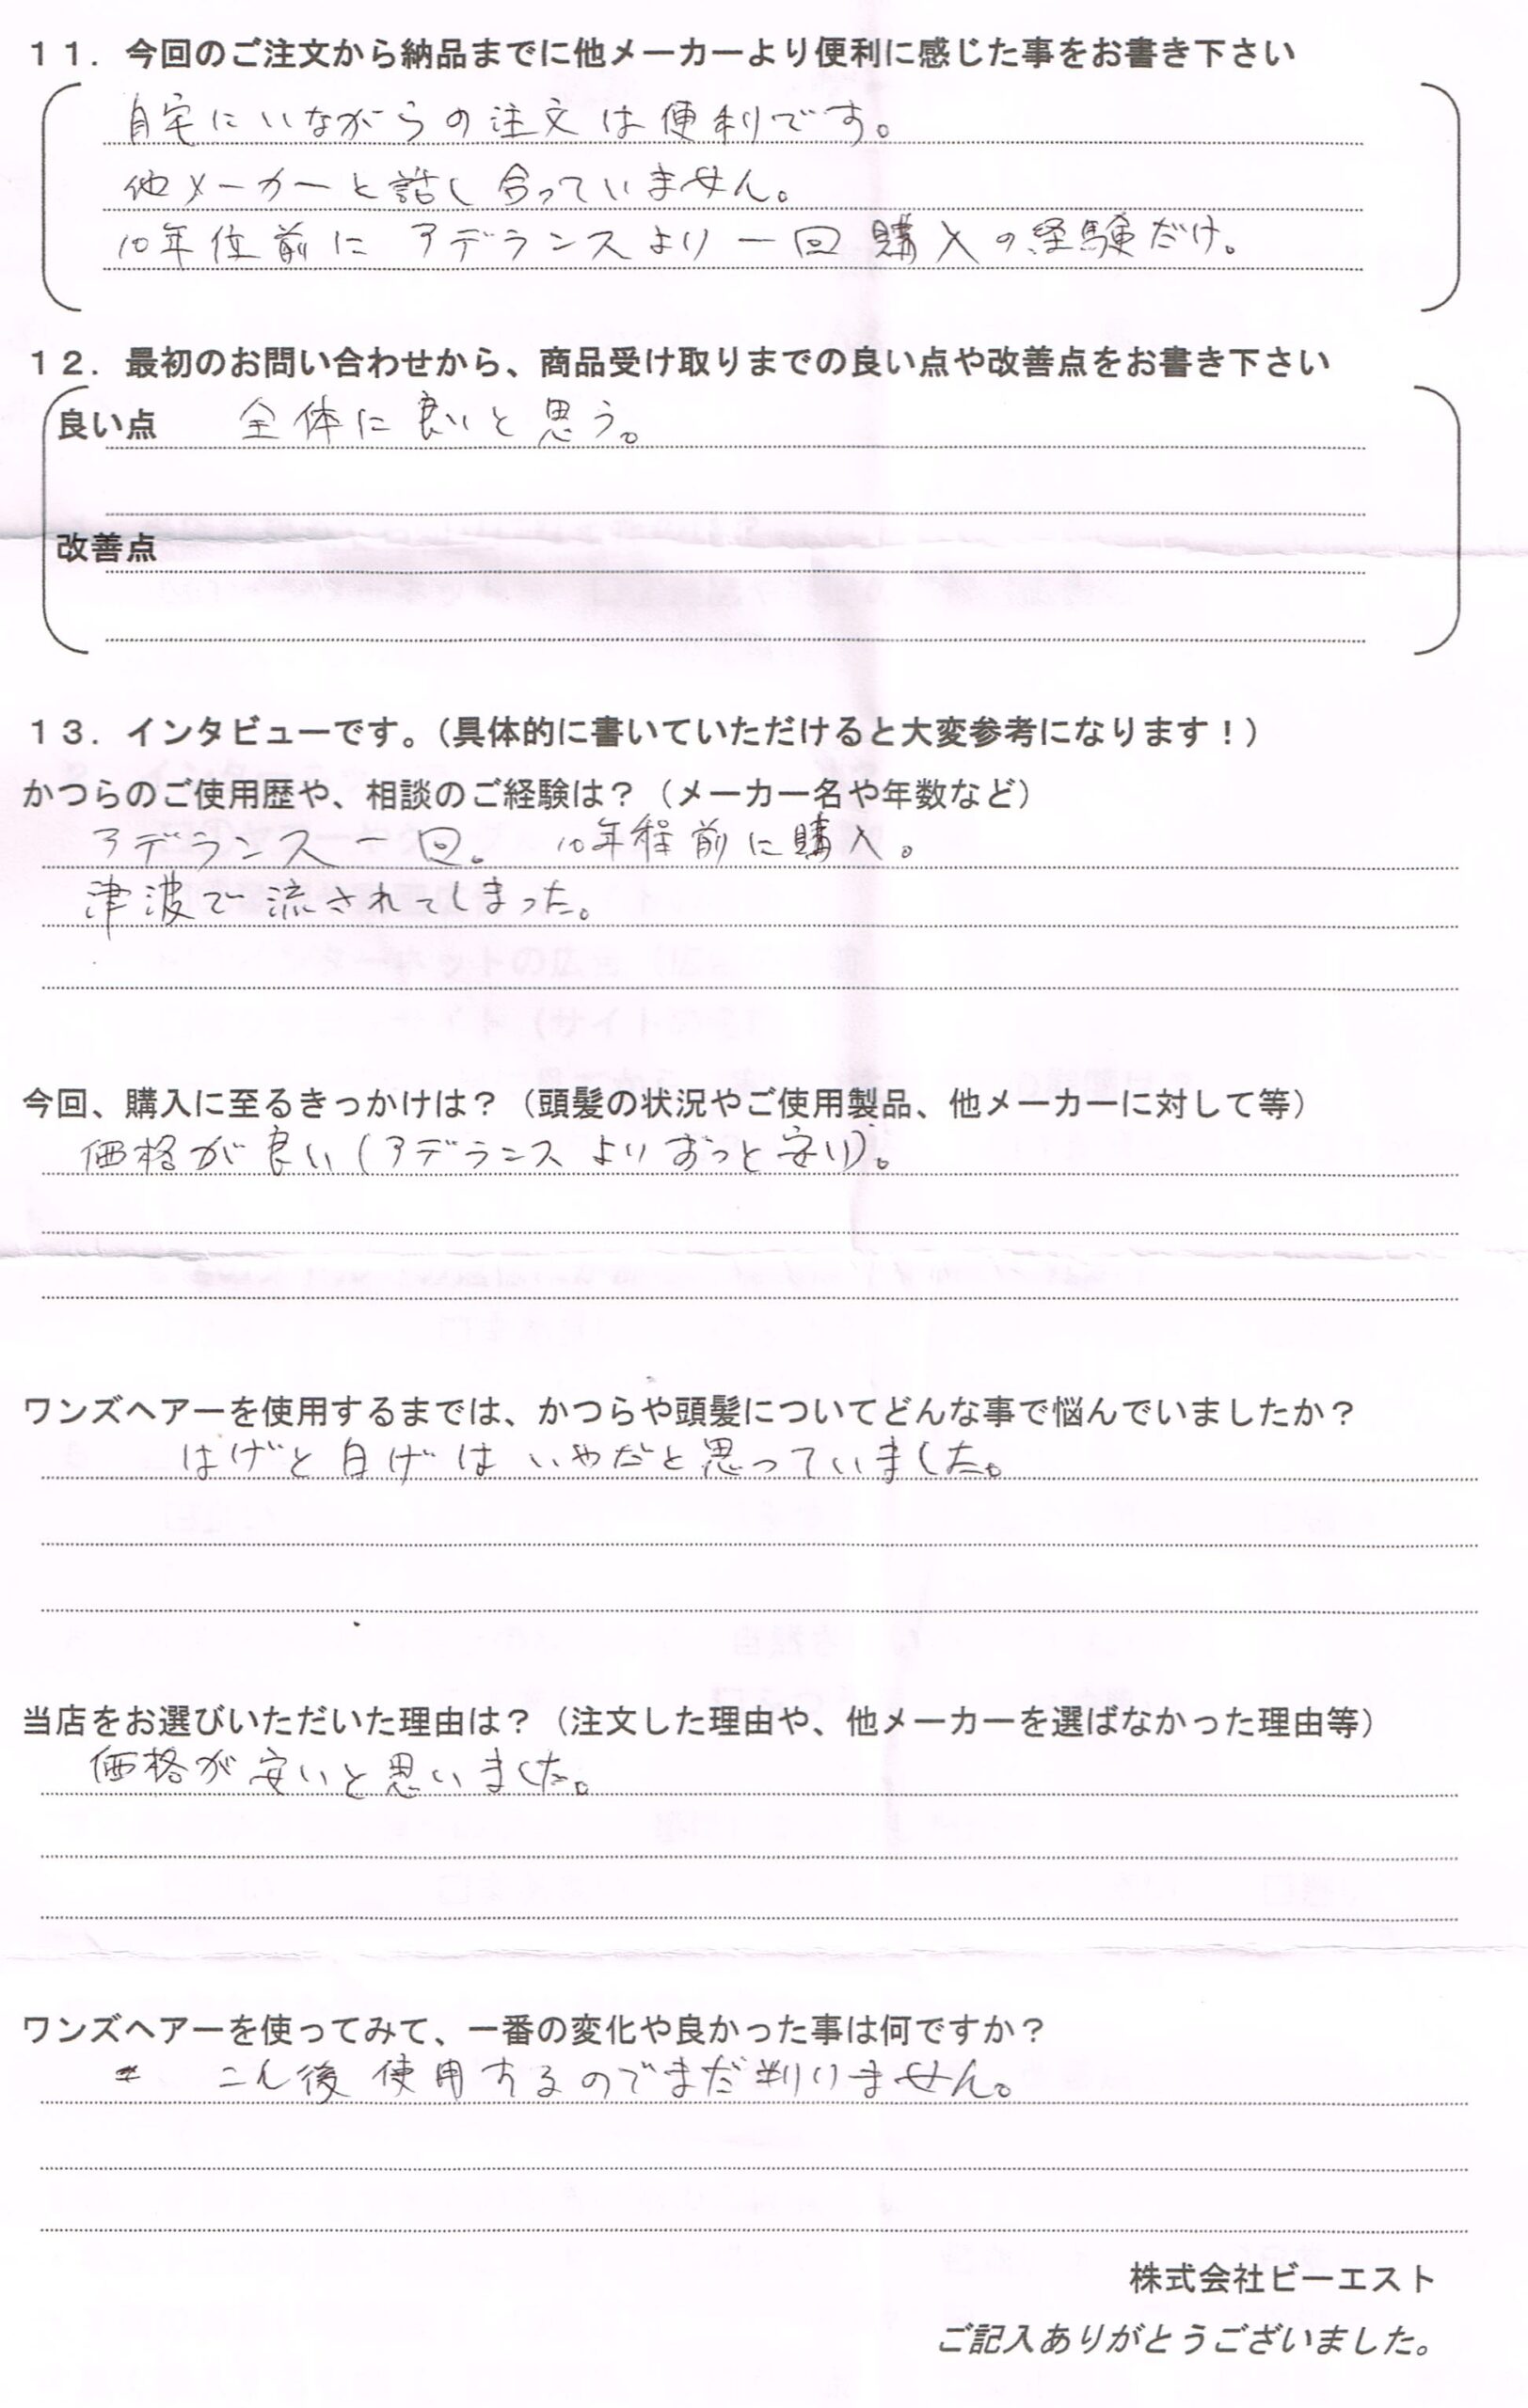 １１．今回のご注文から納品までに他メーカーより便利に感じた事をお書き下さい
自宅にいながらの注文は便利です。
他メーカーと話し合っていません。
10年位前にアデランスより一回購入の経験だけ。
１２．最初のお問い合わせから、商品受け取りまでの良い点や改善点をお書き下さい
良い点　全体に良いと思う。
改善点
１３．インタビューです。（具体的に書いていただけると大変参考になります！）
かつらのご使用歴や、相談のご経験は？（メーカー名や年数など）
アデランス一回。　10年程前に購入。
津波で流されてしまった。
今回、購入に至るきっかけは？（頭髪の状況やご使用製品、他メーカーに対して等）
価格が良い（アデランスよりずっと安い）。
ワンズヘアーを使用するまでは、かつらや頭髪についてどんな事で悩んでいましたか？
はげと白げはいやだと思っていました。
当店をお選びいただいた理由は？（注文した理由や、他メーカーを選ばなかった理由等）
価格が安いと思いました。
ワンズヘアーを使ってみて、一番の変化や良かった事は何ですか？
こん後使用するのでまだ判りません。
株式会社ビーエスト
ご記入ありがとうございました。